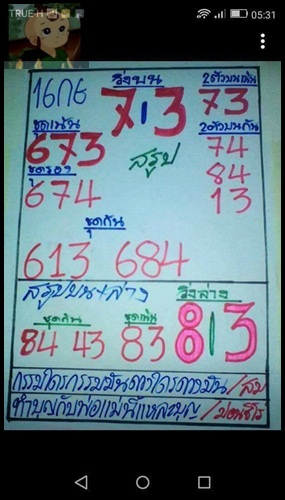 TRUE-H 05:31
16 กย วิ่งบน 2ตัวบนเน้น
713 73
ชุดเน้น 2ตัวบนกัน
673 สรุป 74
ชุดรอง 84
674 13
ชุดกัน
613 684
สรุปบน+ล่าง วิ่งล่าง
ชุดกัน ชุดเน้น 813
84 43 83
กรรมใดรกรรมมันดาวใดรดาวมัน/สม
ทำบุญกับพ่อแม่นี่แหละบุญ/